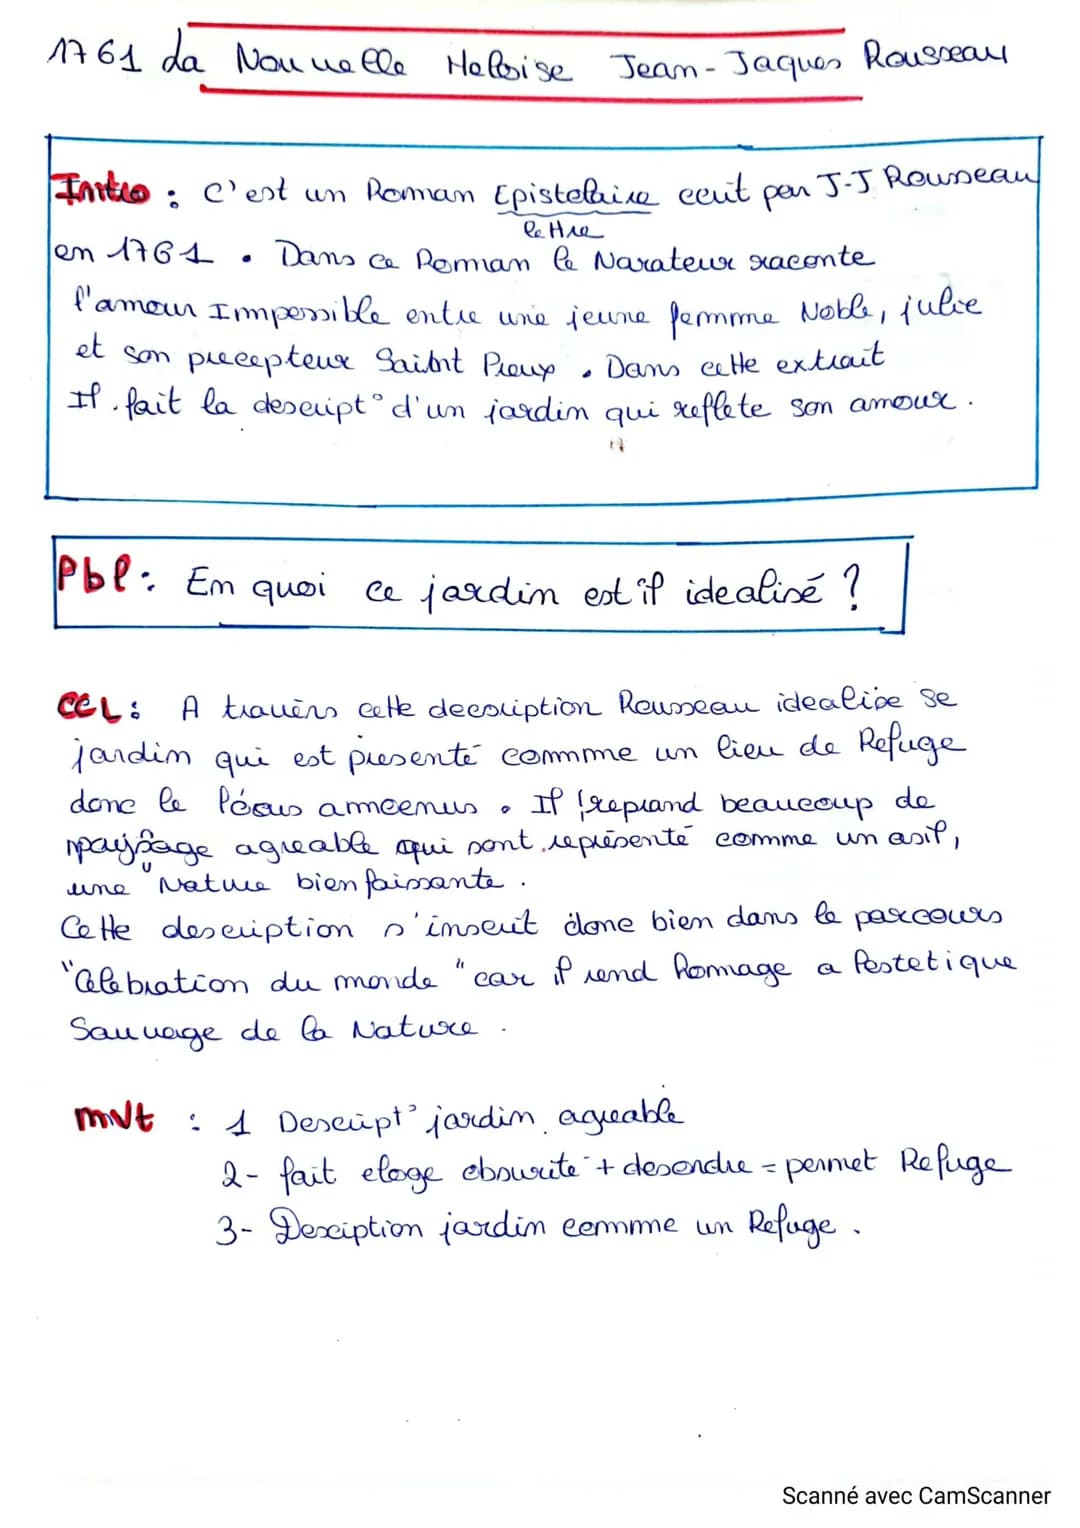 1761 La Nouvelle Heloise Jean-Jaques Rousseau
Intro : C'est un Roman Epistolaire ecrit par J-J Rousseau
lettre
en 1761. Dans ce Roman le Narateur raconte
l'amour Impossible entre une jeune femme Noble, julie
et son precepteur Saint Preux. Dans cette extrait
Il fait la descript° d'un jardin qui reflete son amour.
Pbl: En quoi ce jardin est il idealisé ?
CCL: A travers cette description Rousseau idealise se
jardin qui est presenté comme un lieu de Refuge
donc le lócus amoenus. Il reprand beaucoup de
paysage agreable qui sont représenté comme un asil,
une "Nature bienfaissante.
Cette description s'inscrit donc bien dans le parcours
"Célebration du monde" car il rend homage a l'estetique
Sauvage de la Nature.
mvt : 1 Descript° jardin agreable
2- fait eloge obsurite + desordre = permet Refuge
3- Desciption jardin comme un Refuge.
Scanné avec CamScanner